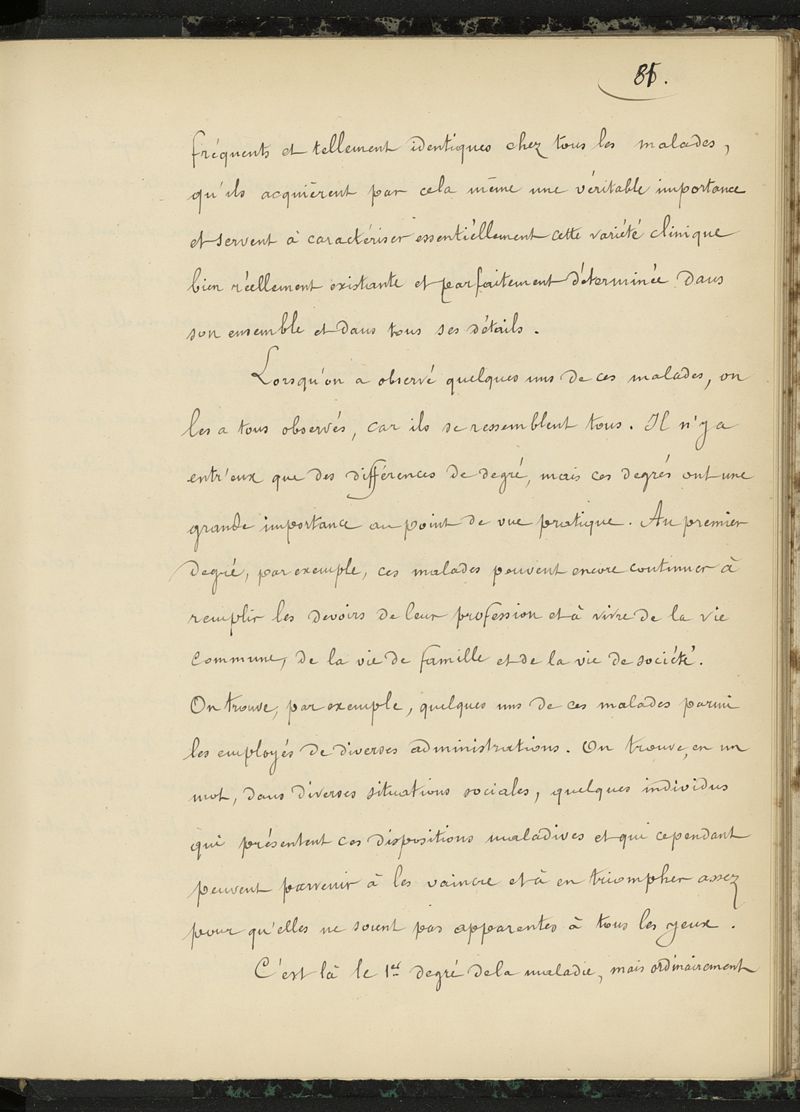 85.
fréquents et tellement identiques chez tous les malades,
qu'ils acquièrent par cela même une véritable importance
et servent à caractériser essentiellement cette variété clinique
bien réellement existante et parfaitement déterminée dans
son ensemble et dans tous ses détails.
Lorsqu'on a observé quelques uns de ces malades, on
les a tous observés, car ils se ressemblent tous. Il n'y a
entr'eux que des différences de degré, mais ces degrés ont une
grande importance au point de vue pratique. Au premier
degré, par exemple, ces malades peuvent encore continuer à
remplir les devoirs de leur profession et à vivre de la vie
commune, de la vie de famille et de la vie de société.
On trouve, par exemple, quelques uns de ces malades parmi
les employés de diverses administrations. On trouve, en un
mot, dans diverses situations sociales, quelques individus
qui présentent ces dispositions maladives et qui cependant
peuvent parvenir à les vaincre et à en triompher assez
pour qu'elles ne soient pas apparentes à tous les yeux.
C'est là le 1er degré de la maladie, mais ordinairement